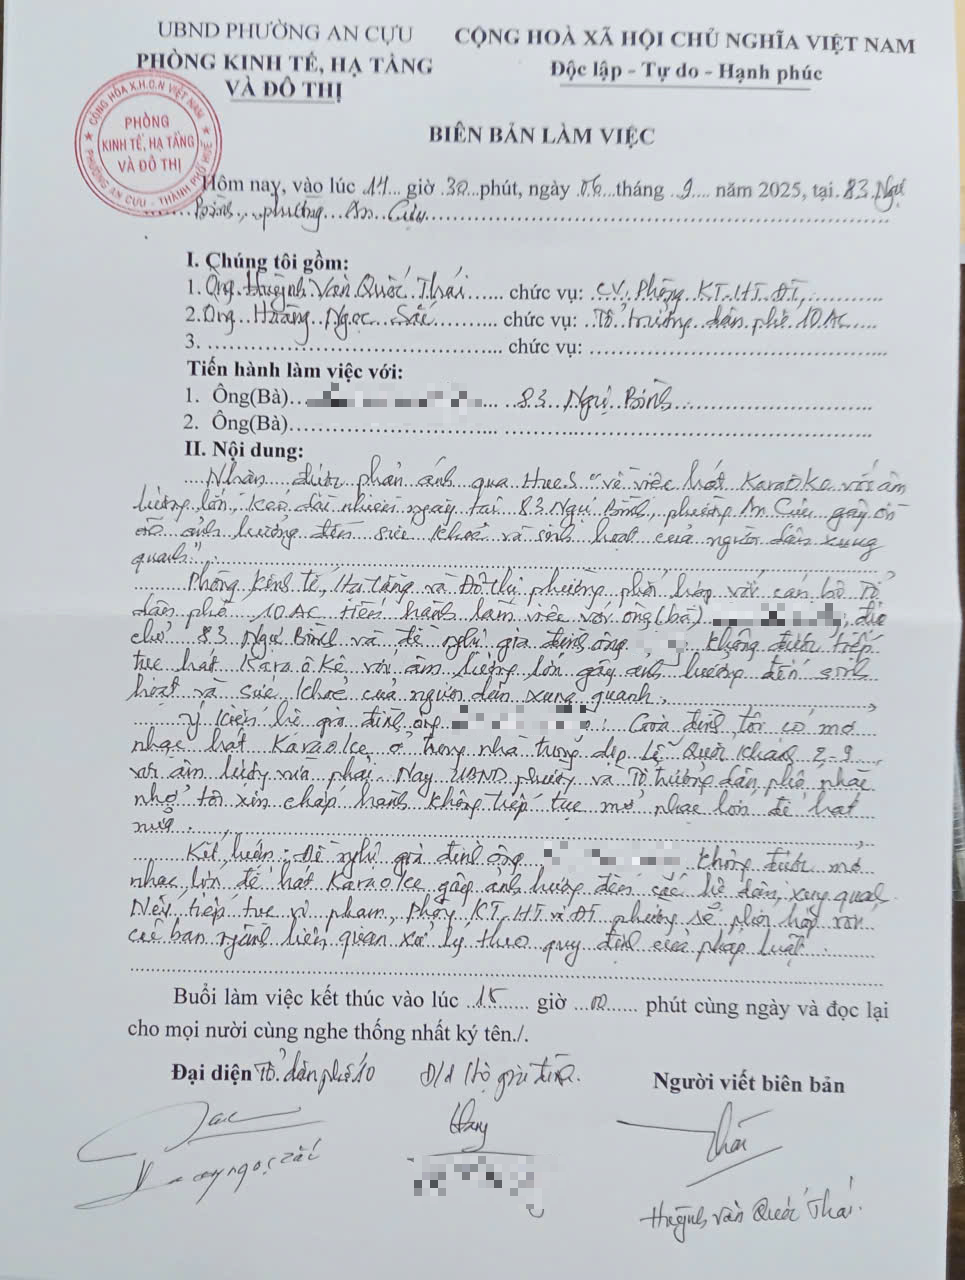 UBND PHƯỜNG AN CỰU
PHÒNG KINH TẾ, HẠ TẦNG
VÀ ĐÔ THỊ
CỘNG HOÀ XÃ HỘI CHỦ NGHĨA VIỆT NAM
Độc lập - Tự do - Hạnh phúc
CỘNG HÒA X.H.C.N VIỆT NAM
PHÒNG
KINH TẾ, HẠ TẦNG
VÀ ĐÔ THỊ
PHƯỜNG AN CỰU - THÀNH PHỐ HUẾ
BIÊN BẢN LÀM VIỆC
Hôm nay, vào lúc 14 giờ 30 phút, ngày 06 tháng 9 năm 2025, tại 83 Ngự
Bình, phường An Cựu
I. Chúng tôi gồm:
1. Ông Huỳnh Văn Quốc Thái chức vụ: CV Phòng KT, HT, ĐT,
2. Ông Hoàng Ngọc Sắc chức vụ: Tổ trưởng dân phố 10 AC
3. chức vụ:
Tiến hành làm việc với:
1. Ông(Bà) 83 Ngự Bình
2. Ông(Bà)
II. Nội dung:
Nhận được phản ánh qua Hue.S "về việc hát Karaoke với âm
lượng lớn, kéo dài nhiều ngày tại 83 Ngự Bình, phường An Cựu gây ồn
ào ảnh hưởng đến sức khoẻ và sinh hoạt của người dân xung
quanh".
Phòng Kinh tế, Hạ tầng và Đô thị phường phối hợp với cán bộ Tổ
dân phố 10 AC tiến hành làm việc với ông (bà) , địa
chỉ 83 Ngự Bình và đề nghị gia đình ông không được tiếp
tục hát Karaôkê với âm lượng lớn gây ảnh hưởng đến sinh
hoạt và sức khoẻ của người dân xung quanh.
Ý kiến hộ gia đình ông : Gia đình tôi có mở
nhạc hát Karaoke ở trong nhà trong dịp Lễ Quốc Khánh 2-9
với âm lượng vừa phải. Nay UBND phường và Tổ trưởng dân phố nhắc
nhở tôi xin chấp hành không tiếp tục mở nhạc lớn để hát
nữa.
Kết luận: Đề nghị gia đình ông không được mở
nhạc lớn để hát Karaoke gây ảnh hưởng đến các hộ dân xung quanh.
Nếu tiếp tục vi phạm, Phòng KT, HT và ĐT phường sẽ phối hợp với
các ban ngành liên quan xử lý theo quy định của pháp luật.
Buổi làm việc kết thúc vào lúc 15 giờ 00 phút cùng ngày và đọc lại
cho mọi nười cùng nghe thống nhất ký tên./.
Đại diện Tổ dân phố 10 Đ/d Hộ gia đình. Người viết biên bản
Thái
Huỳnh Văn Quốc Thái